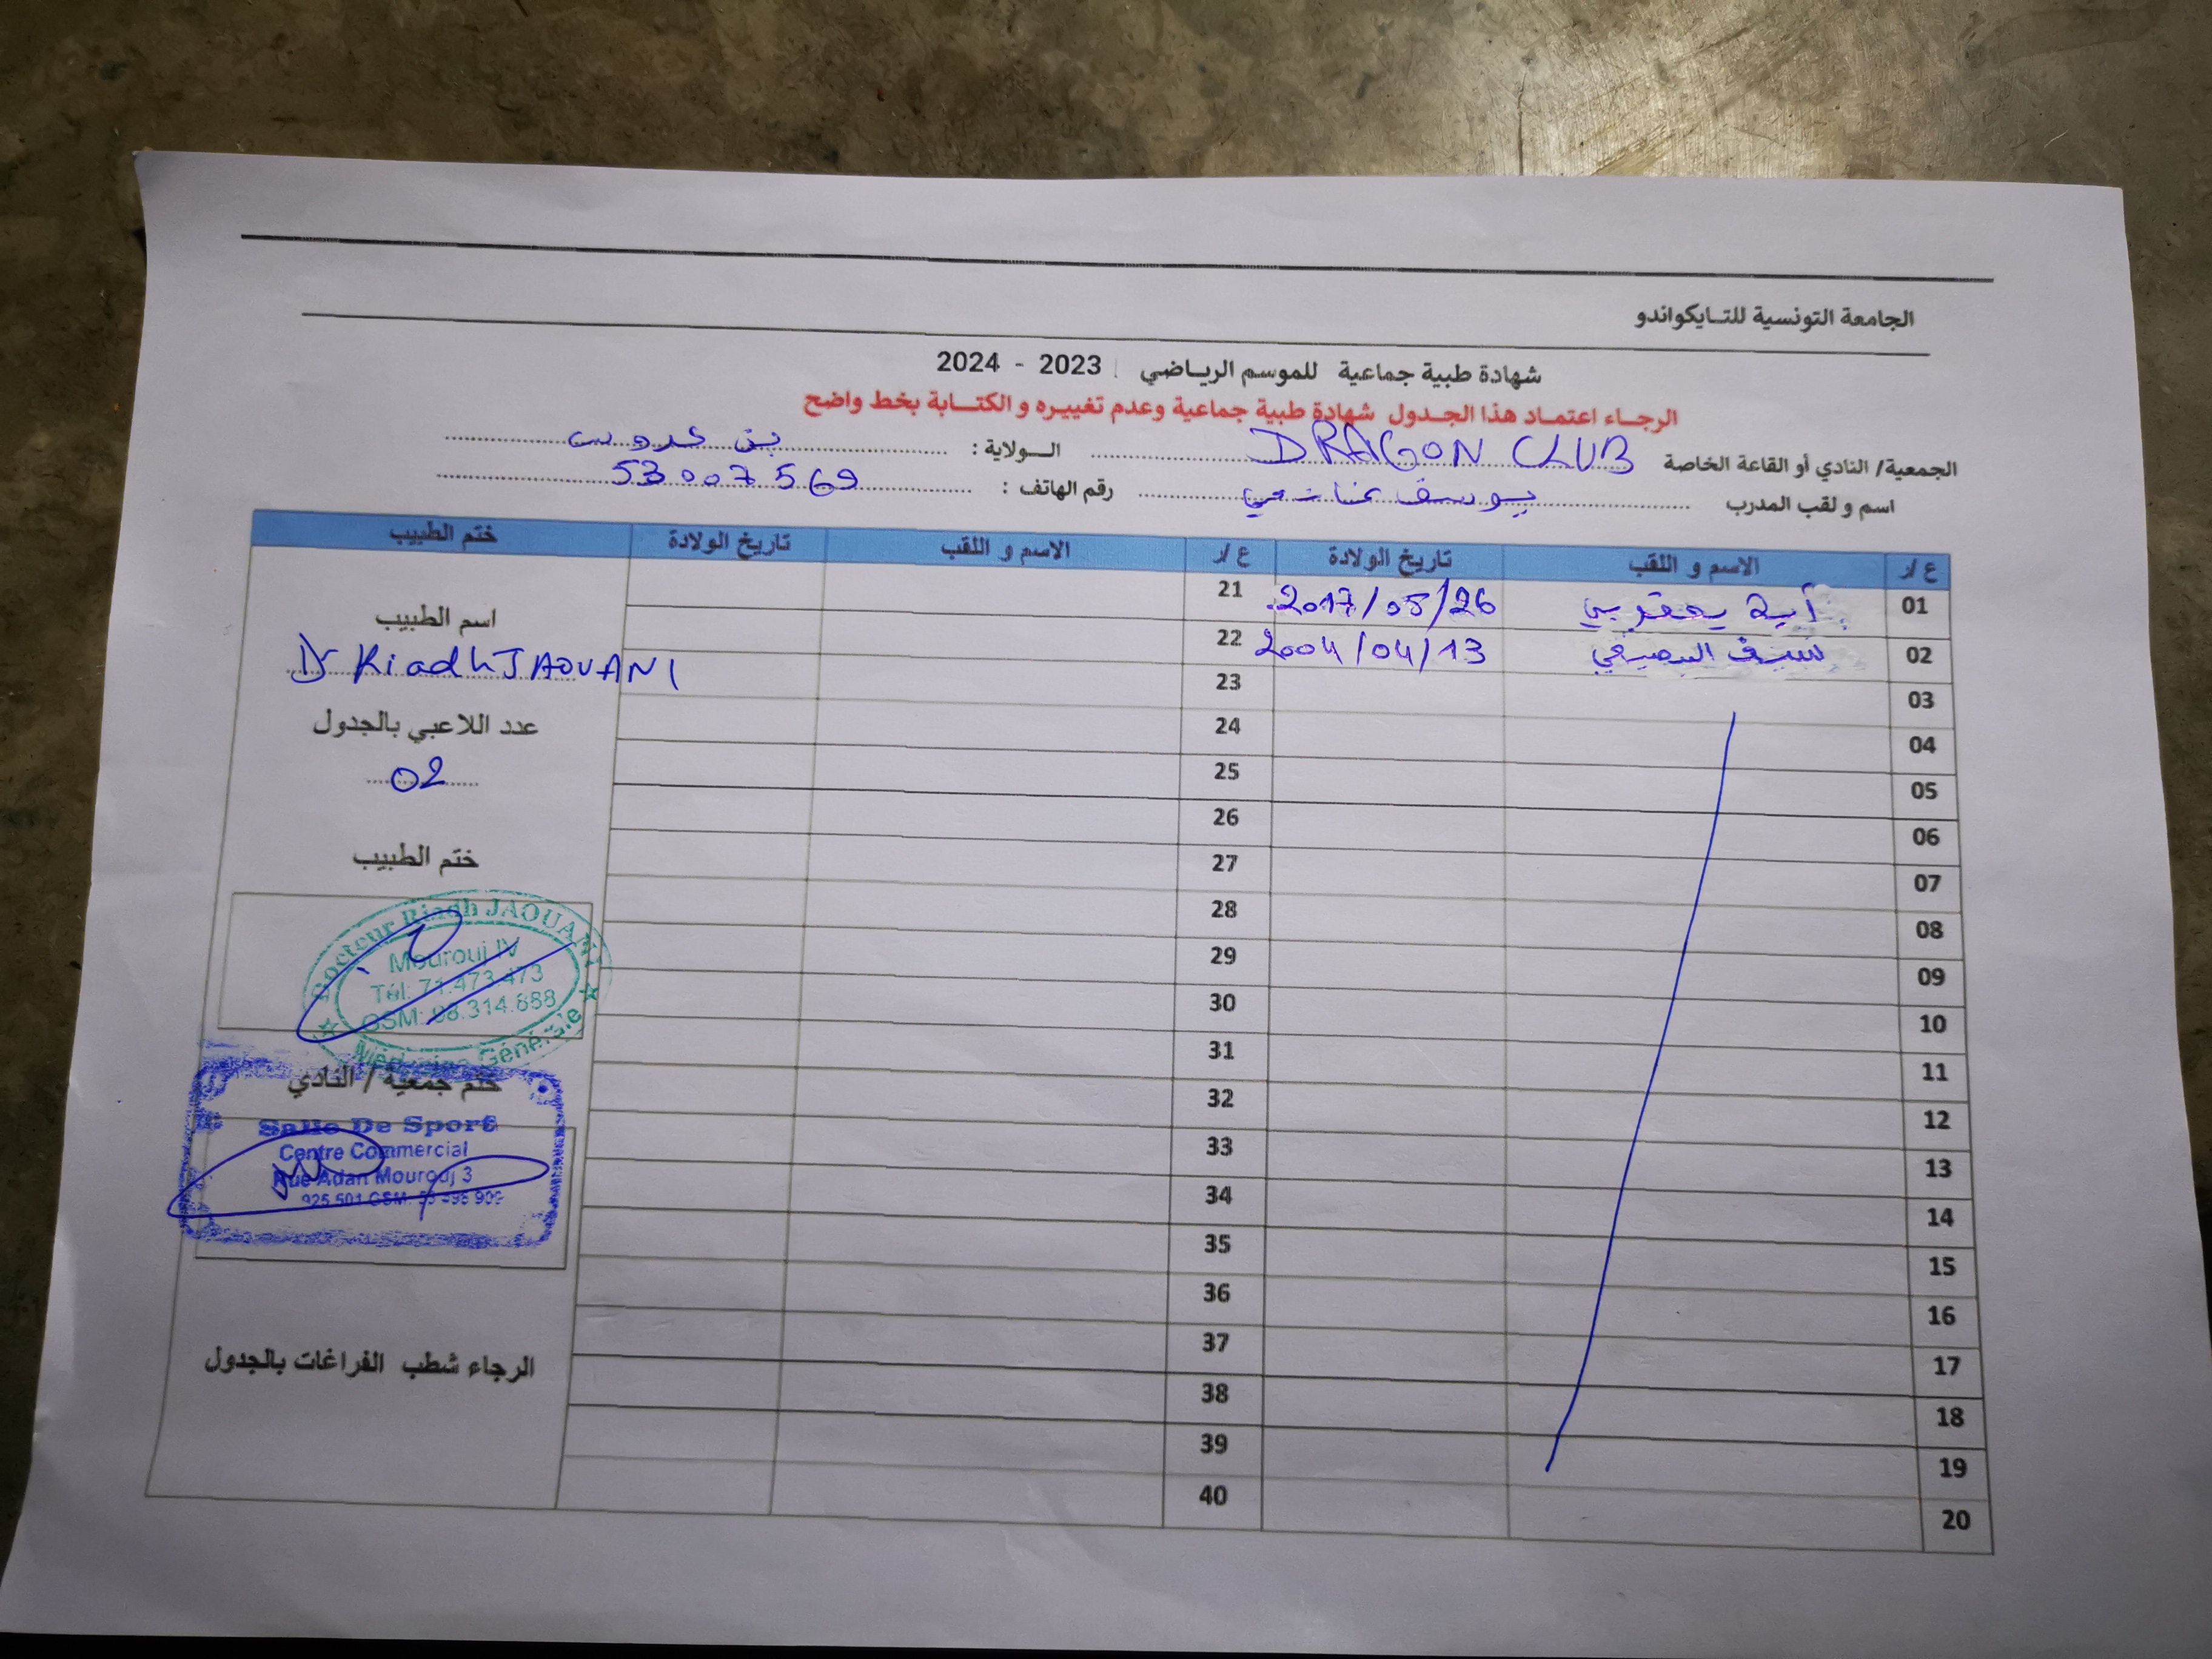 الجامعة التونسية للتايكواندو
شهادة طبية جماعية للموسم الرياضي 2023 - 2024
الرجاء اعتماد هذا الجدول شهادة طبية جماعية وعدم تغييره و الكتابة بخط واضح
الجمعية/ النادي أو القاعة الخاصة DRAGON CLUB الولاية : بن عروس
اسم و لقب المدرب يوسف رقم الهاتف : 53007569
ع/ر الاسم و اللقب تاريخ الولادة ع/ر الاسم و اللقب تاريخ الولادة ختم الطبيب
01 آية يعقوبي 2017/05/26 21
02 سيف 2004/04/13 22
03 23
04 24
05 25
06 26
07 27
08 28
09 29
10 30
11 31
12 32
13 33
14 34
15 35
16 36
17 37
18 38
19 39
20 40
اسم الطبيب
Dr Riadh JAOUANI
عدد اللاعبي بالجدول
02
ختم الطبيب
Docteur Riadh JAOUANI
Mourouj IV
Tél: 71.473.473
GSM: 98.314.688
Médecine Générale
ختم جمعية / النادي
Salle De Sport
Centre Commercial
Rue Adan Mourouj 3
925 501 GSM:
الرجاء شطب الفراغات بالجدول